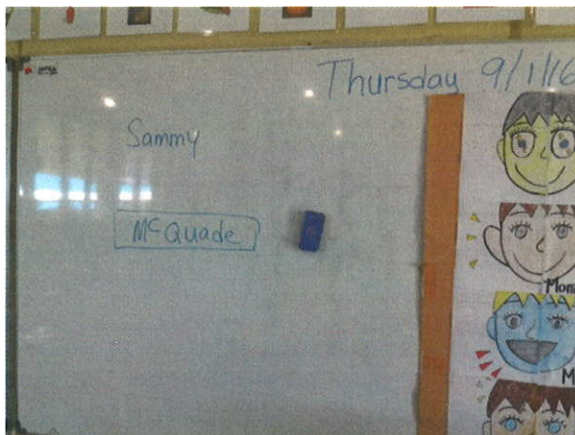 Thursday 9/1/16
Sammy
McQuade
Mom
M